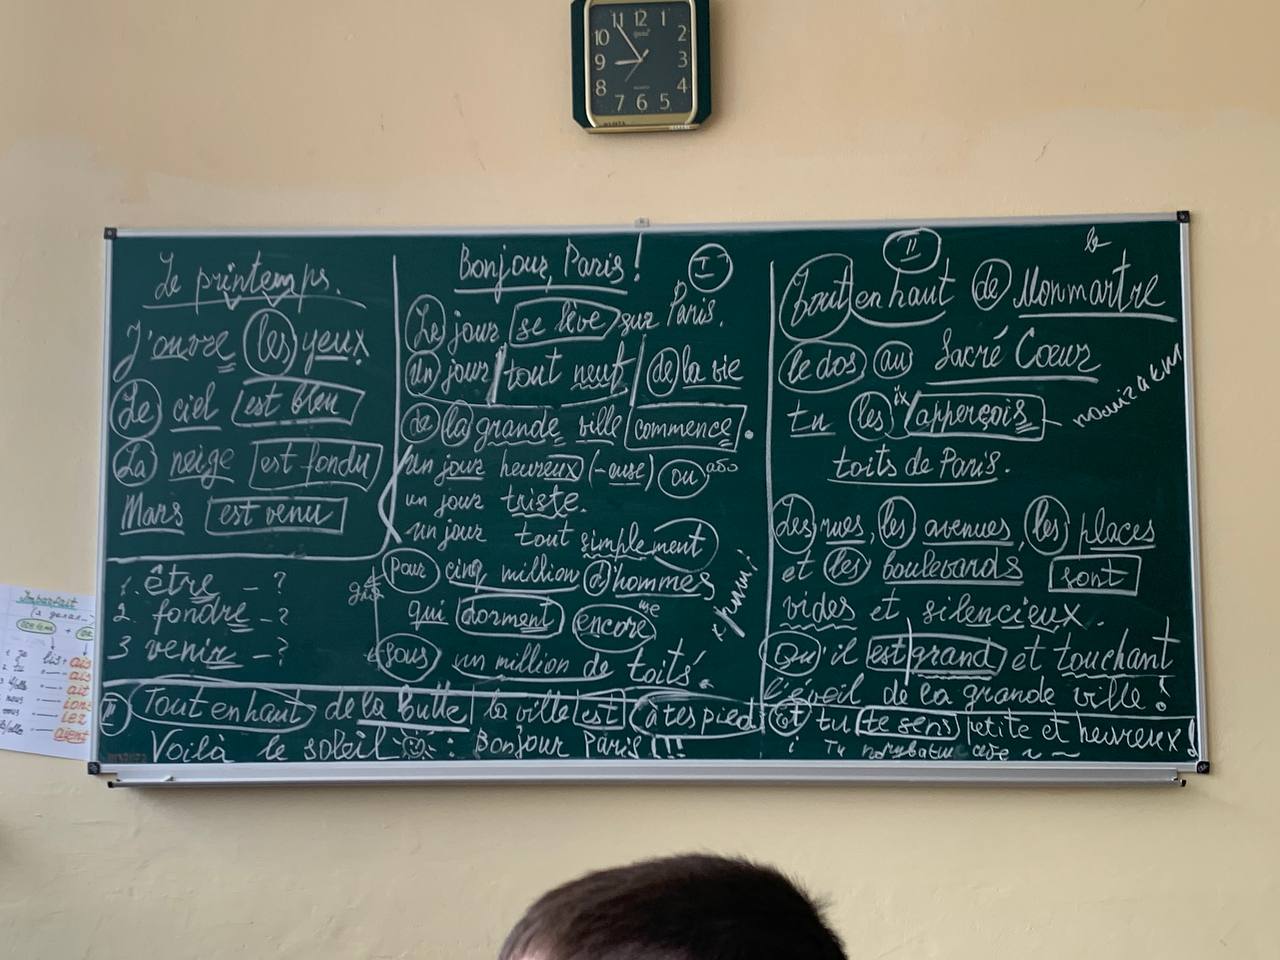 11 12 1
10 2
9 3
8 4
7 6 5
Le printemps.
J'ouvre les yeux
Le ciel est bleu
La neige est fondu
Mars est venu
1. être – ?
2. fondre – ?
3 venir – ?
Bonjour, Paris!
I
Le jour se lève sur Paris.
Un jour tout neuf de la vie
De la grande ville commence.
un jour heureux (-euse) ou або
un jour triste.
un jour tout simplement
pour cinq million d'hommes
для
qui dorment encore
ще
sous un million de toits.
II
le
Tout en haut de Monmartre
le dos au Sacré Cœur
tu les apperçois
їх
помічати
toits de Paris.
Les rues, les avenues, les places
et les boulevards sont
vides et silencieux.
Qu'il est grand et touchant
l'éveil de la grande ville!
III Tout en haut de la Butte la ville est à tes pieds et tu te sens petite et heureux!
Voilà le soleil : Bonjour Paris!!!
і ти почуваєш себе ~ ~
Imparfait
ais
ais
ait
ions
iez
aient